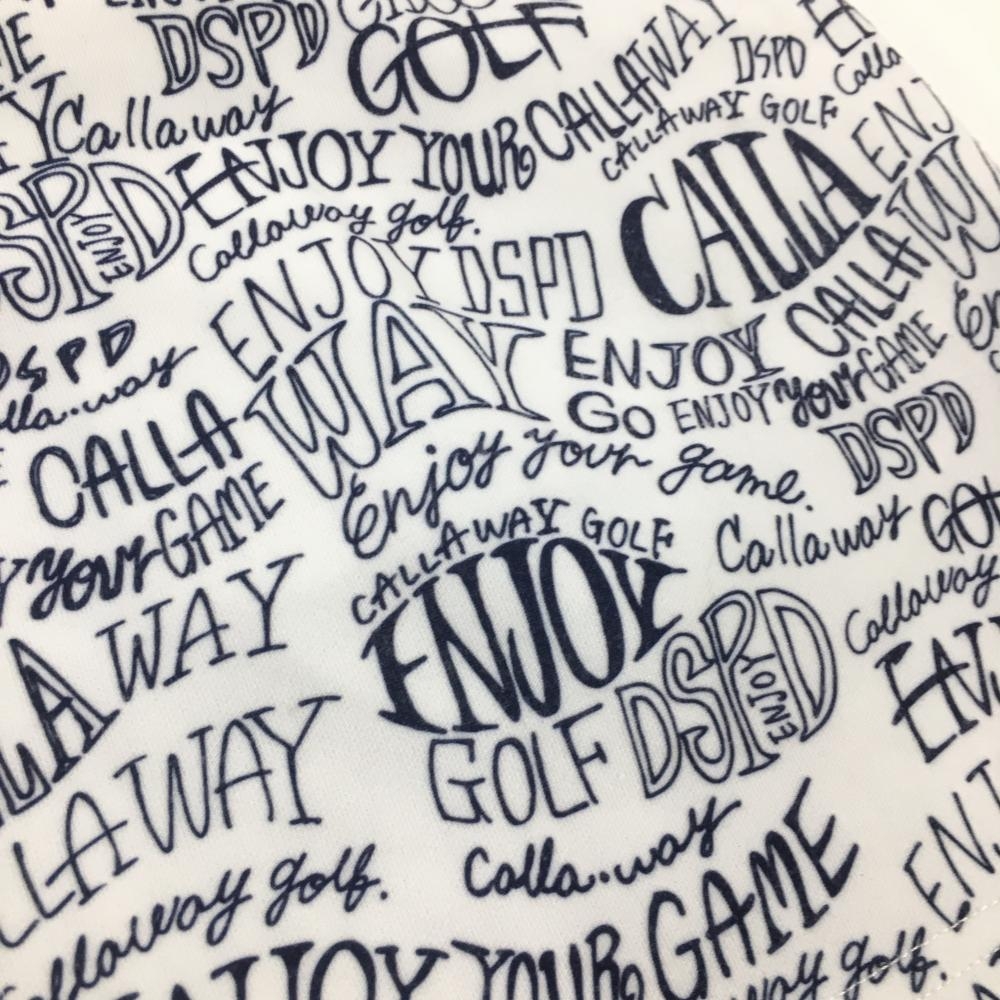 DSPD
GOLF
CALLAWAY
DSPD
Callaway
ENJOY YOUR
CALLAWAY GOLF
CALLA
ENJ
DSPD
ENJOY
Callaway golf.
ENJOY
DSPD
CALLA
WAY
ENJOY
DSPD
GO
ENJOY your GAME
CALLA
DSPD
Enjoy your game.
your GAME
CALLAWAY GOLF
Callaway
ENJOY
WAY
Callaway
GOLF
DSPD
ENJOY
LLAWAY
Calla..way
allaway golf.
GAME
ENJOY YOUR
way golf.